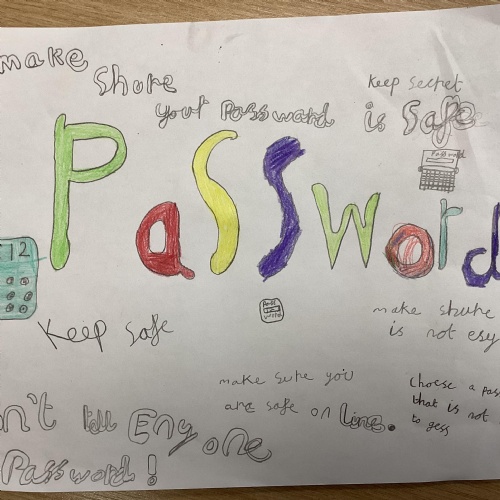 make
shure
your Password is Safe
keep secret
Password
PassWord
12
Pass
word
Keep safe
make shure
is not esy
make sure you
are safe on line.
Choose a pass
that is not
to gess
n't tell Eny one
Password!